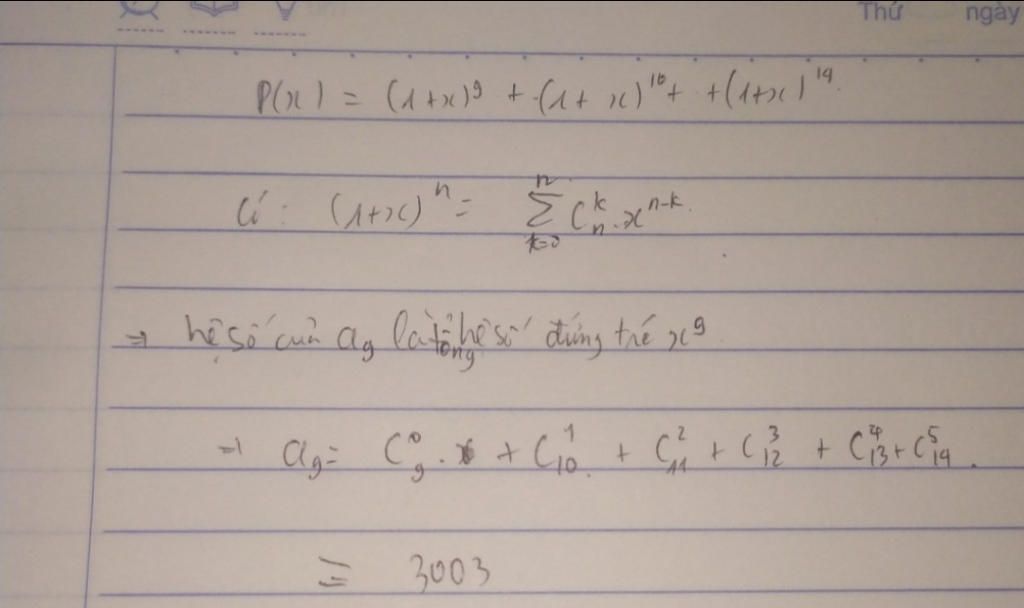 Thứ ngày
P(x) = (1+x)^9 + (1+x)^10 + +(1+x)^14
Có: (1+x)^n = ∑_{k=0}^{n} C_n^k . x^{n-k}.
⇒ hệ số của a_9 là tổng hệ số đứng trc x^9
⇒ a_9 = C_9^0 . + C_10^1 + C_11^2 + C_12^3 + C_13^4 + C_14^5.
= 3003